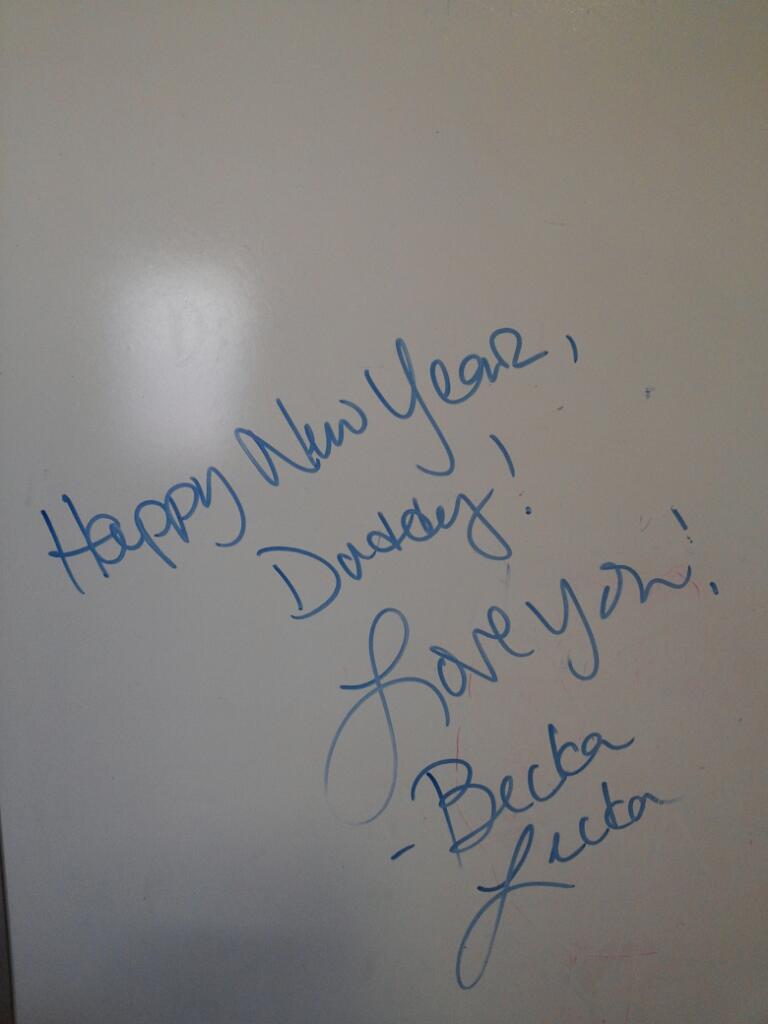 Happy New Year,
Daddy!
Love you!
- Becka
Lecka